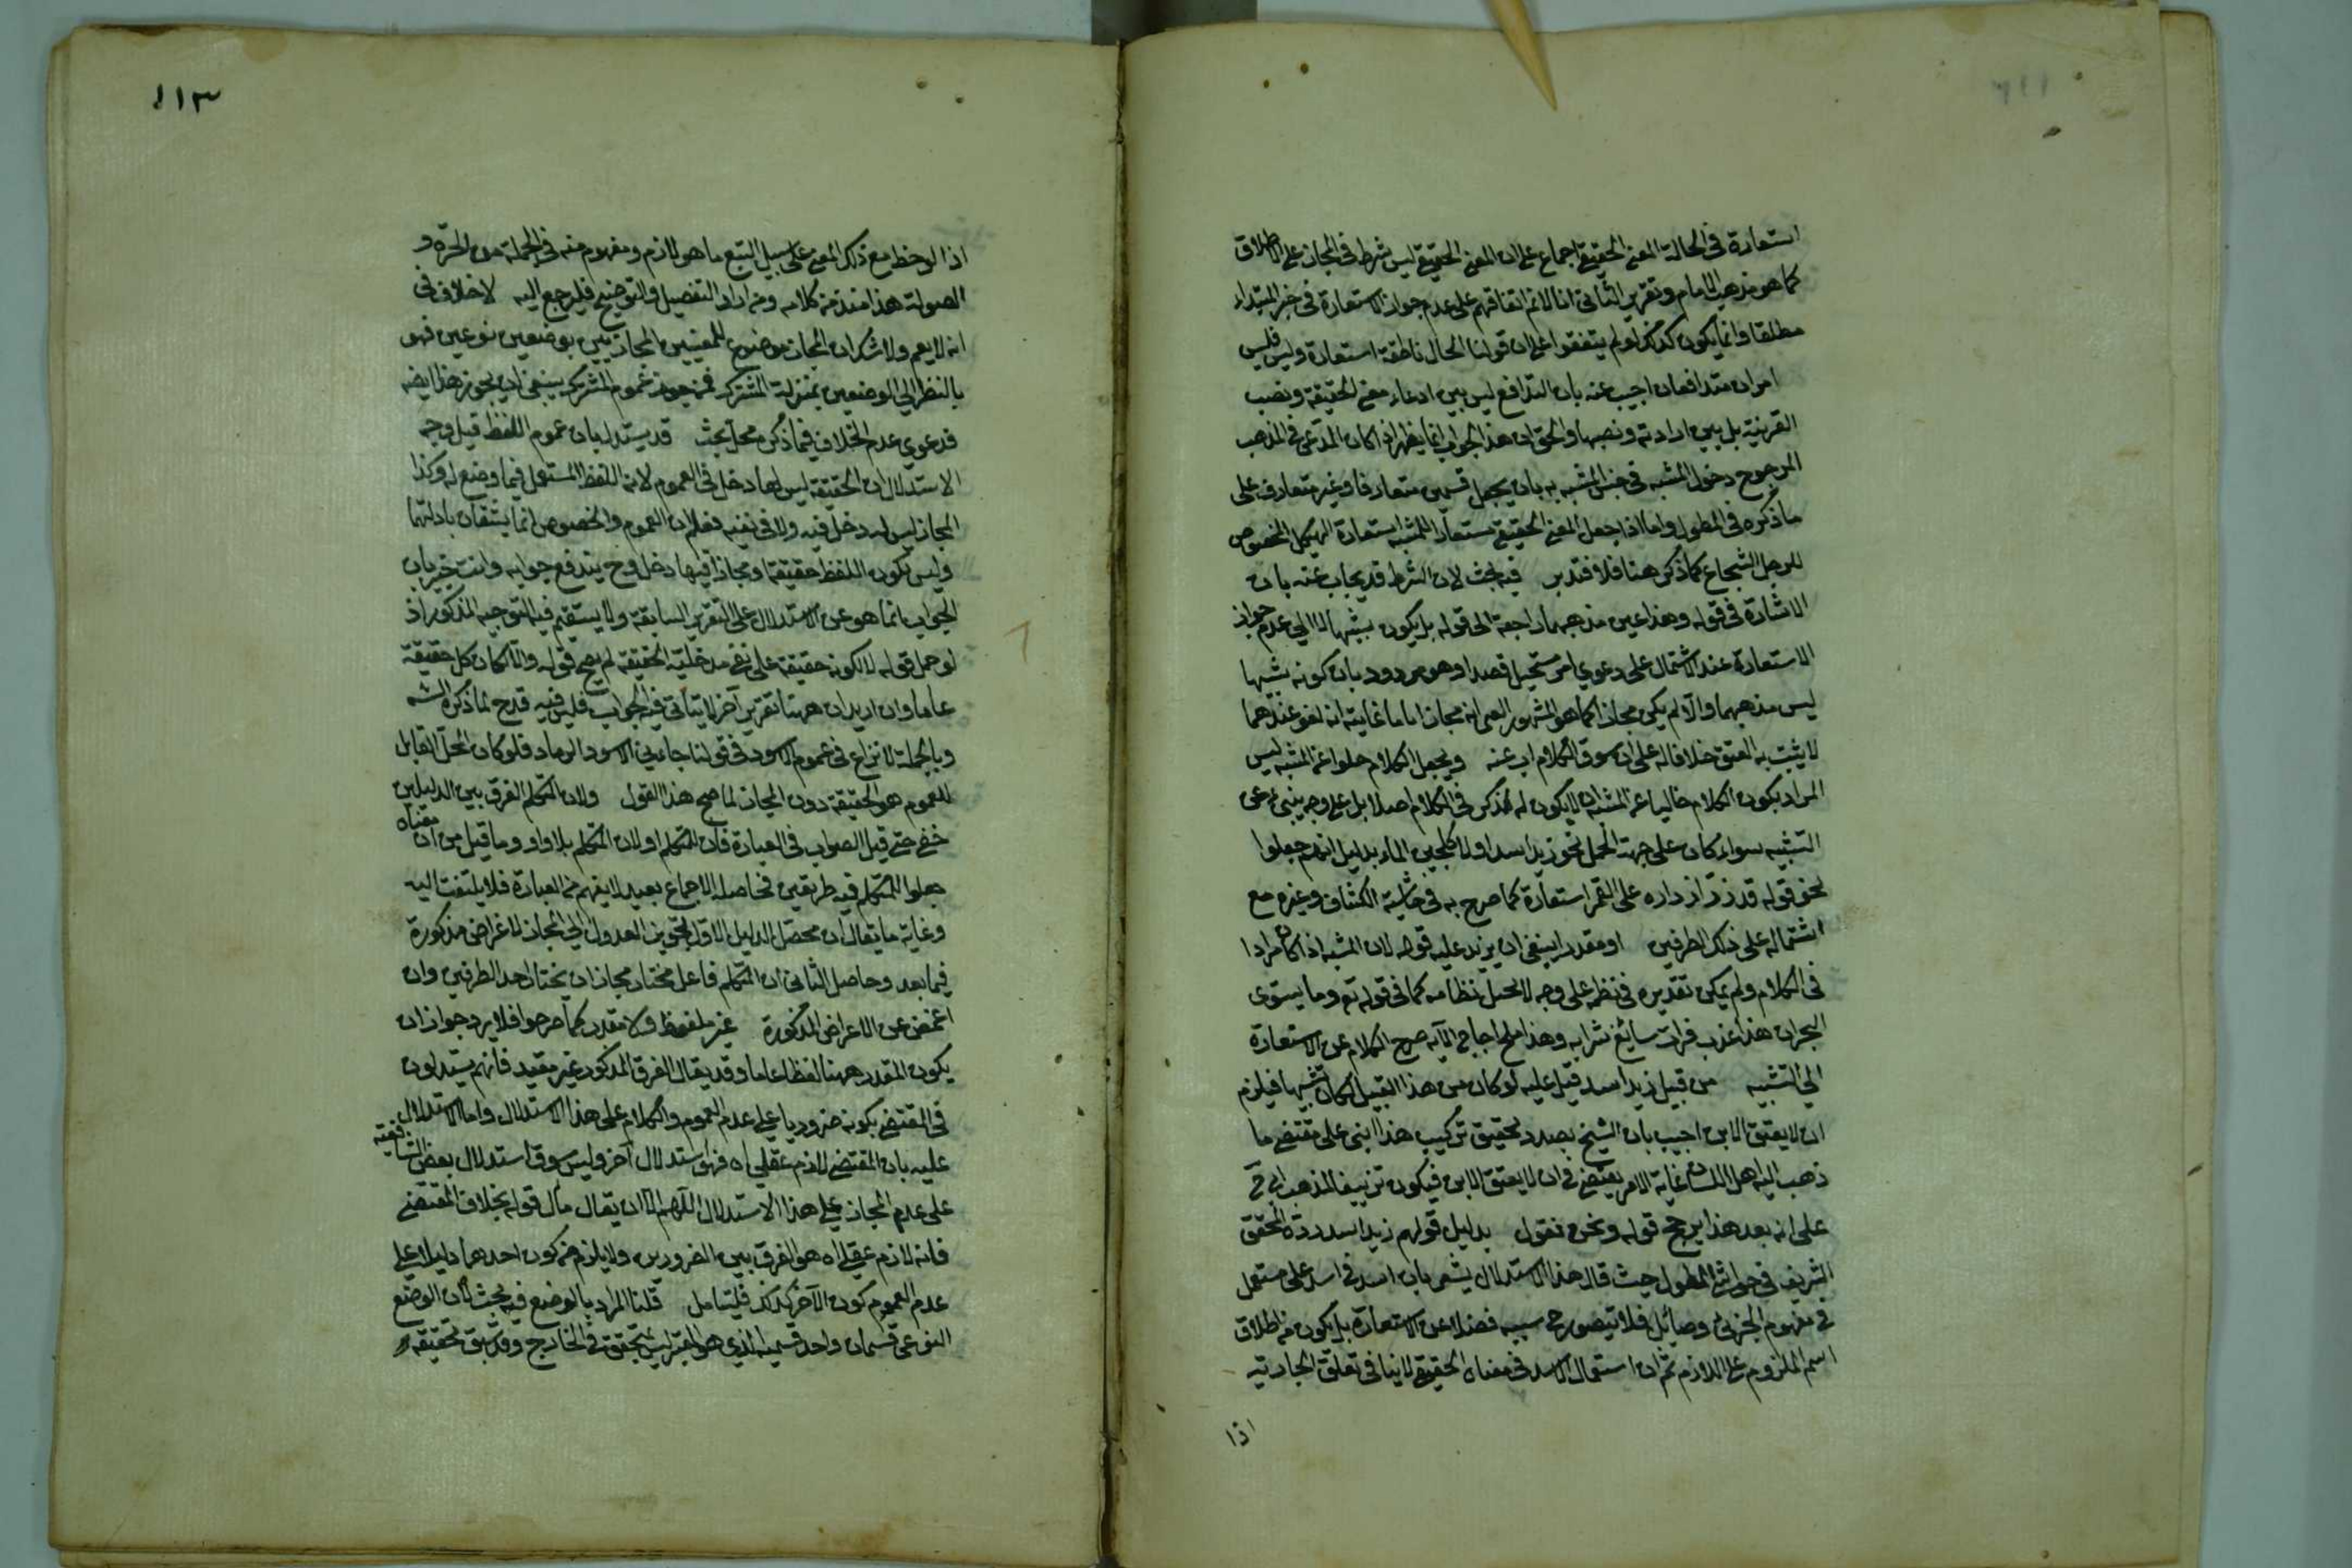 استعارة في الحالة المعنى الحقيقي اجماع على ان المعنى الحقيقي ليس شرط في المجاز على الاطلاق
كما هو مذهب الامام وتقرير الثاني انا لانم اتفاقهم على عدم جواز الاستعارة في خبر المبتداء
مطلقا وانما يكون كذلك لو لم يتفقوا على ان قولنا الحال ناطقة استعارة وليس فليس
امران متدافعان اجيب عنه بان التدافع ليس بين ادعاء معنى الحقيقة ونصب
القرينة بل بين ارادته ونصبها والحق ان هذا الجواب انما يظهر اذا كان المدعى في المذهب
المرجوح دخول المشبه في جنس المشبه به بان يجعل قسمين متعارفا وغير متعارف على
ما ذكره في المطول واما اذا جعل المعنى الحقيقي مستعارا للمشبه استعارة الهيكل المخصوص
للرجل الشجاع كما ذكر هنا فلا فتدبر فيه بحث لان الشرط قد يجاب عنه بان
الاشارة في قوله وهذا عين مذهبهما راجعة الى قوله بل يكون تشبيها لا الى عدم جواز
الاستعارة عند الاشتمال على دعوي امر مستحيل قصدا وهو مردود بان كونه تشبيها
ليس مذهبهما والا لم يكن مجازا كما هو المشهور انه مجاز اما ما غايته انه لغو عندهما
لا يثبت به العتق خلافا له على ان سوق الكلام اب عنه ويجعل الكلام خلوا عن المشبه ليس
المراد بكون الكلام خاليا عن المشبه ان لا يكون له ذكر في الكلام اصلا بل على وجه ينبئ عن
التشبيه سواء كان على جهة الحمل نحو زيد اسد اولا كلجين الماء بدليل انهم جعلوا
نحو قوله قد زر ازراره على القمر استعارة كما صرح به في حاشية الكشاف وغيره مع
اشتماله على ذكر الطرفين او مقدر ا ينبغي ان يزيد عليه قوله لان المشبه اذا كان مرادا
في الكلام ولم يمكن تقديره في نظمه على وجه لا يخل نظامه كما في قوله تع وما يستوى
البحران هذا عذب فرات سايغ شرابه وهذا ملح اجاج الآيه خرج الكلام عن الاستعارة
الي التشبيه من قبيل زيد اسد قيل عليه لو كان من هذا القبيل لكان تشبيها فيلزم
ان لا يعتق الابن اجيب بان الشيخ بصدد تحقيق تركيب هذا ابني على مقتضى ما
ذهب اليه اهل اللسان غاية الامر يقتضي في ان لا يعتق الابن فيكون تزييفا لمذهب
على انه بعد هذا يرجح قوله ونحن نقول بدليل قولهم زيد اسد رده المحقق
الشريف في حواشي المطول حيث قال هذا الاستدلال يشعر بان اسد في اسد على مستعمل
في مفهوم الجزئ وصائل فلا يتصور ح سببه فضلا عن الاستعارة بل يكون من اطلاق
اسم الملزوم على اللازم ثم ان استعمال الاسد في معناه الحقيقي لا ينافي تعلق الجار به
اذا
١١٣
اذا لوحظ مع ذلك المعنى على سبيل التبع ما هو لازم ومفهوم منه في الجملة من الجرءة و
الصولة هذا نبذ من كلامه ومن اراد التفصيل والتوضيح فليرجع اليه لا خلاف في
انه لا يعم ولا شك ان المجاز موضوع للمعنيين المجازيين بوضعين نوعين فهو
بالنظر الي الوضعين بمنزلة المشترك فمن جوز عموم المشترك ينبغي ان يجوز هذا ايضه
فدعوي عدم الخلاف فيما ذكر محل بحث قد يستدل بان عموم اللفظ قيل وجه
الاستدلال ان الحقيقة ليس لها دخل في العموم لانه اللفظ المستعمل فيما وضع له وكذا
المجاز ليس له دخل فيه ولا في نفيه فعلم ان العموم والخصوص انما يثبتان بادلتهما
وليس لكون اللفظ حقيقة او مجازا فيها دخل وح يندفع جوابه وانت خبير بان
الجواب انما هو عن الاستدلال على التقرير السابقة ولا يستقيم فيه التوجيه المذكور اذ
لو حمل قوله لا لكونه حقيقة على نفي مدخلية الحقيقة لم يصح قوله والا لكان كل حقيقة
عاما وان اريد ان ههنا تقرير آخر لا يتأتى فيه الجواب فليس فيه قدح لما ذكره الشـ
وبالجملة لا نزاع في عموم الاسود في قولنا جاءني الاسود الرماة فلو كان المحل القابل
للعموم هو الحقيقة دون المجاز لما صح هذا القول ولان المتكلم الفرق بين الدليلين
خفي حتى قيل الصواب في العبارة فان المتكلم او لان المتكلم بلا واو وما قيل من ان معناه
جعلوا للمتكلم فيه طريقين فحاصله الاجماع بعيد لا يفهم من العبارة فلا يلتفت اليه
وغاية ما يقال ان محصل الدليل الاول تجويز العدول الي المجاز لاغراض مذكورة
فيما بعد وحاصل الثاني ان المتكلم فاعل مختار مجاز ان يختار احد الطرفين وان
اغمض عن الاعراض المذكورة غير ملفوظ ولا مقدر كما صرحوا فلا يرد جواز ان
يكون المقدر ههنا لفظا عاما وقد يقال الفرق المذكور غير مقيد فانهم يستدلون
في المقتضى بكونه ضروريا على عدم العموم والكلام على هذا الاستدلال واما الاستدلال
عليه بان المقتضى لازم عقلي اه فهو استدلال آخر وليس سوق استدلال بعض الشافعيه
على عدم المجاز على هذا الاستدلال اللهم الا ان يقال مآل قوله بخلاف المقتضى
فانه لازم عقلي اه هو الفرق بين الضرورين ولا يلزم من كون احدهما دليلا على
عدم العموم كون الآخر كذلك فليتأمل قلنا المراد بالوضع فيه بحث لان الوضع
النوعي قسمان واحد قسميه الذي هو المعتبر ليس بتحقق في الخارج وقد سبق تحقيقه